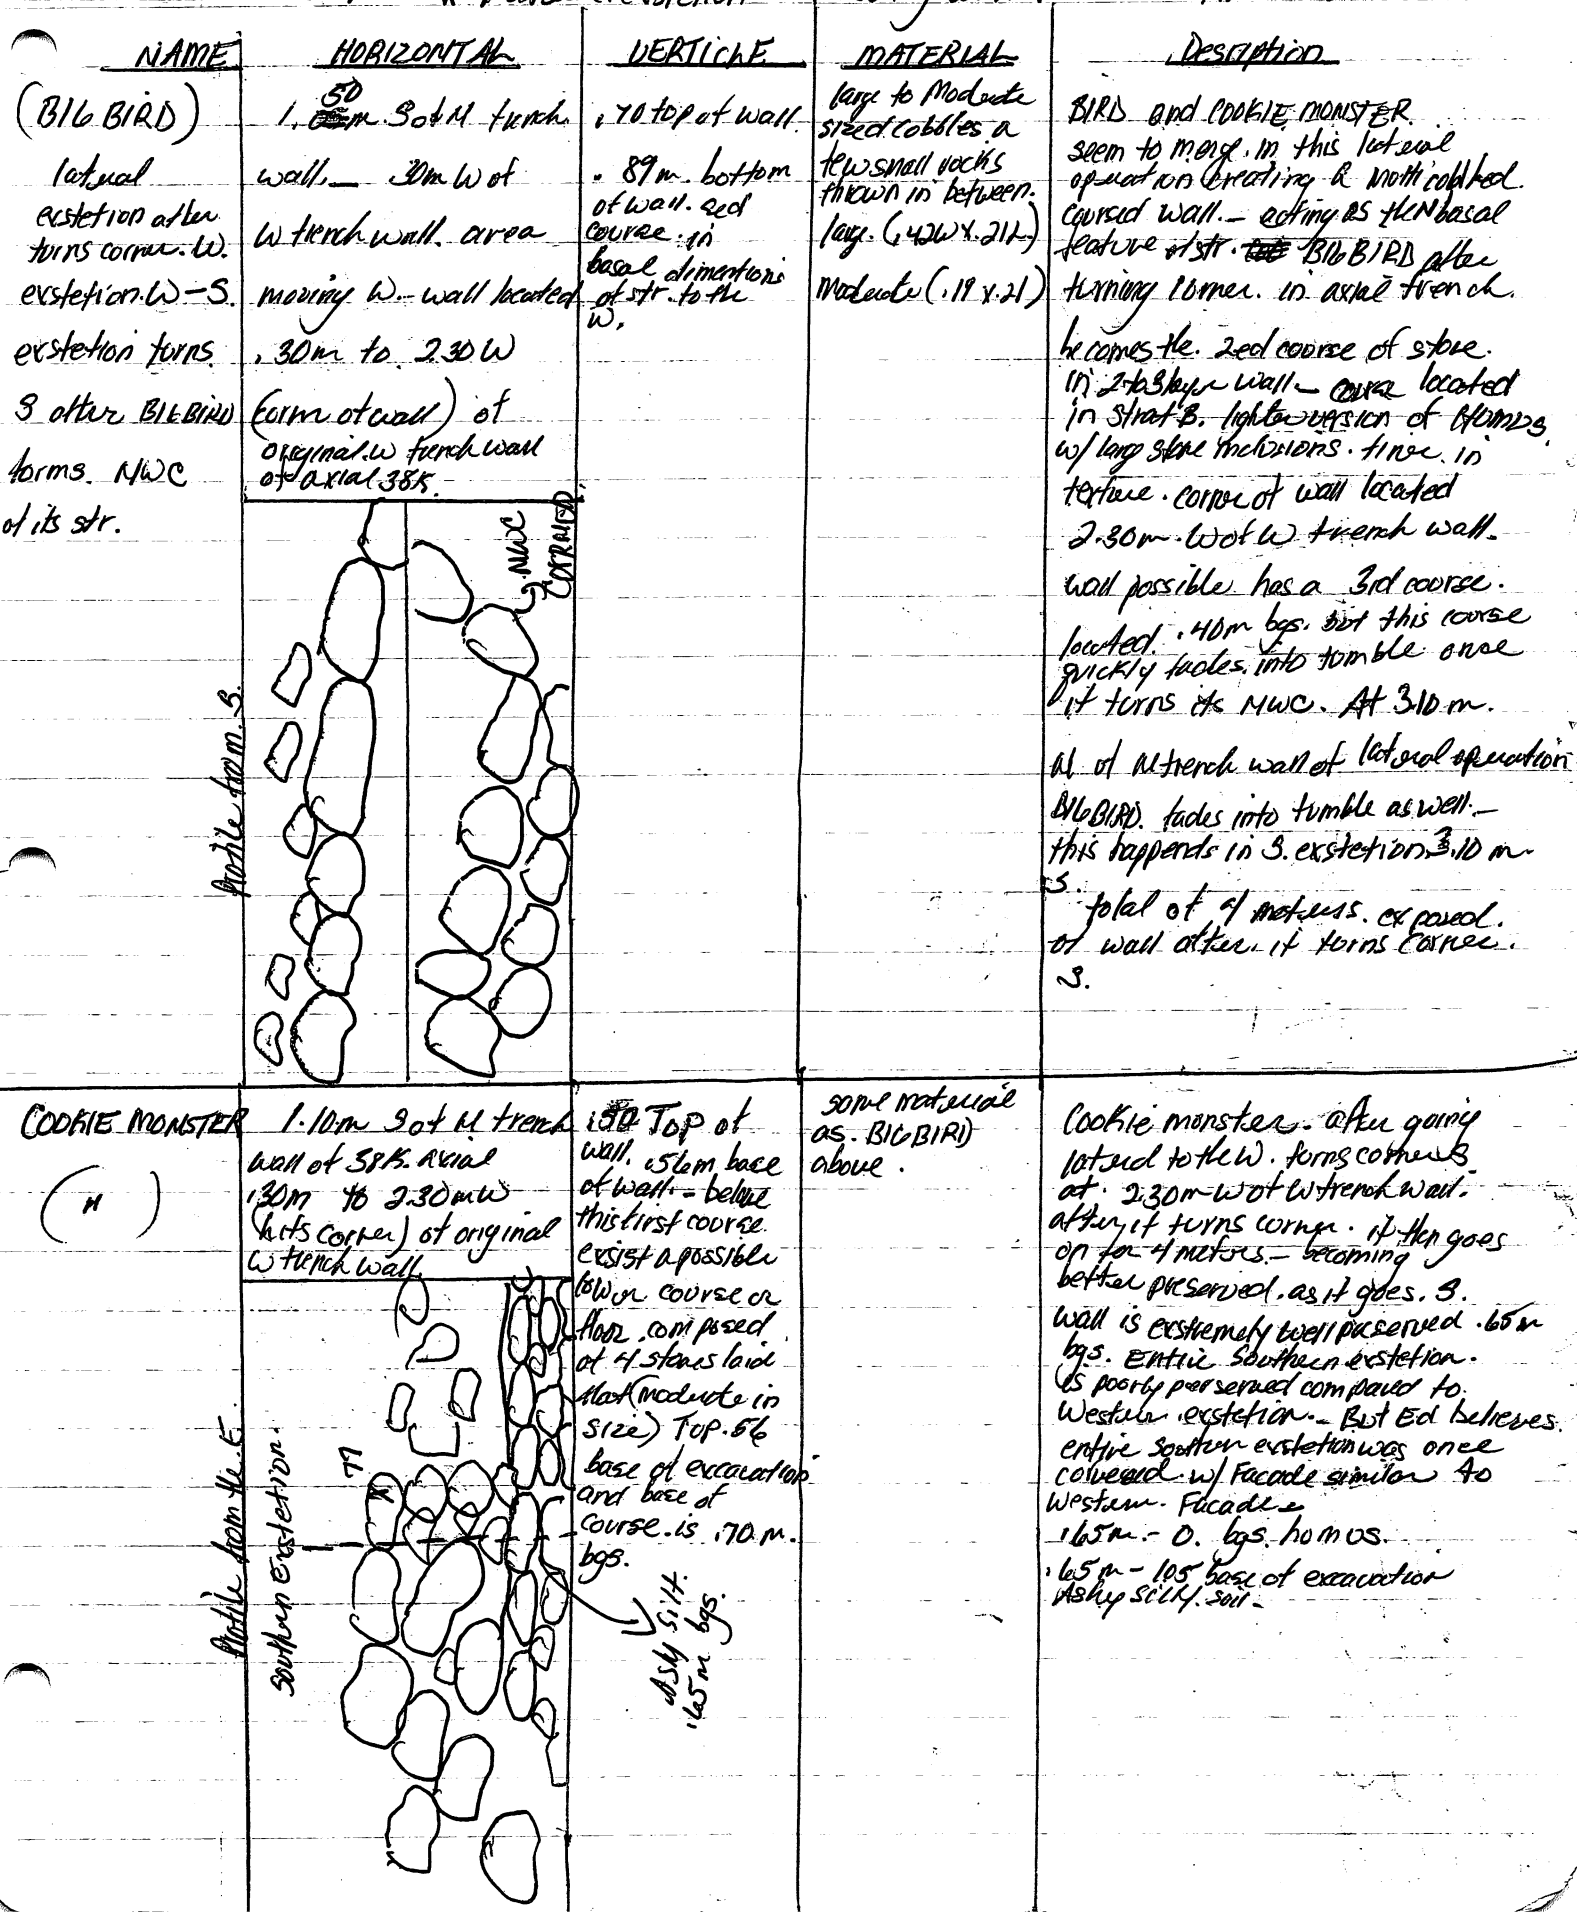 NAME
HORIZONTAL
VERTICLE
MATERIAL
Desription
(BIG BIRD)
lateral
exstetion after
turns corner. W.
exstetion. W-S.
exstetion turns
S after BIGBIRD
forms. NWC
of its str.
50
1. m S of N trench
wall. — .30m W of
W trench wall. area
moving W. - wall located
.30m to 2.30 W
(corm of wall) of
original. W trench wall
of axial 38K.
.70 top of wall.
.89m. bottom
of wall. 2ed
course. in
basal dimentions
of str. to the
W.
large to Moderate
sized cobbles a
few small rocks
thrown in between.
large. (.42W x .21L)
moderate (.19 x .21)
BIRD and COOKIE MONSTER
seem to merge. in this lateral
operation creating a
coursed wall. - acting as the N basal
feature of str. BIGBIRD after
turning corner. in axial trench.
becomes the. 2ed course of stone.
in 2 to 3 layer wall - course located
in strat B. lighter version of HUMUS.
w/ large stone inclusions. finer. in
texture. corner of wall located
2.30m. W of W trench wall.
wall possible has a 3rd course.
located. .40m bgs. but this course
quickly fades. into tumble once
it turns its NWC. At 3.10 m.
of N trench wall of lateral operation
BIGBIRD. fades into tumble as well. -
this happends in S. exstetion 3.10 m
S.
total of 4 meters. exposed.
of wall after. it turns corner.
S.
NWC
CORRNER
Profile from. S.
COOKIE MONSTER
( " )
1.10m S of N trench
wall of 38K. axial
.30m to 2.30m W
(hits corner) of original
W trench wall
Top of
wall. .56m base
of wall. - below
this first course
exsist a possible
lower course or
floor. composed
of 4 stones laid
flat (moderate in
size) Top .56
base of excavation
and base of
course. is .70 m.
bgs.
same material
as. BIGBIRD
above.
Cookie monster. after going
lateral to the W. turns corner S
at. 2.30m W of W trench wall.
after it turns corner. it then goes
on for 4 meters. - becoming
better preserved. as it goes. S.
wall is exstremely well preserved .65m
bgs. Entire Southern exstetion.
is poorly perserved compared to.
Western. exstetion. - But Ed believes.
entire southern exstetion was once
covered w/ Facade similar to
Western. Facade.
.65m. - 0. bgs. homus.
.65m - 105 base of excavation
Ashy silty. soil -
Profile from the E.
Southern Exstetion.
Ashy silt.
.65m bgs.